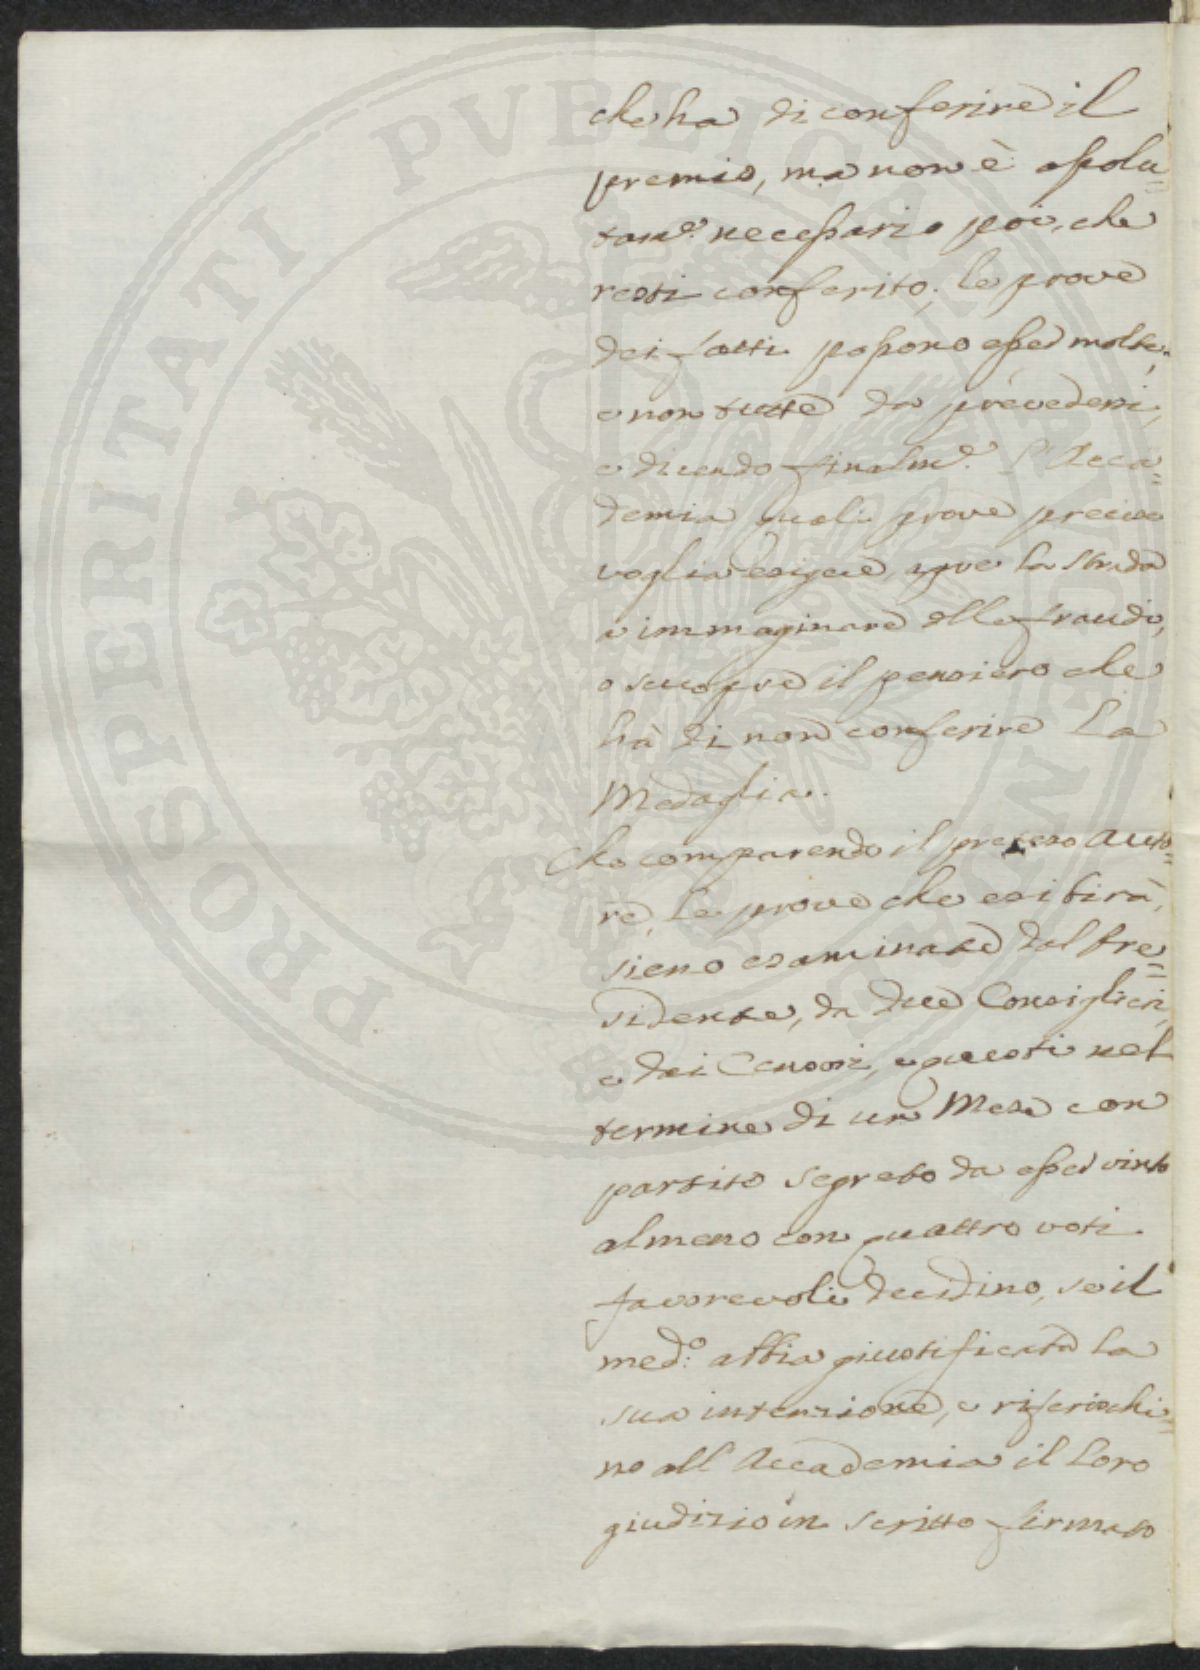 che ha di conferire il
premio, ma non è assolu=
tam.e necessario poi, che
resti conferito; le prove
dei fatti possono esser molte,
e non tutte da prevedersi,
e dicendo finalm.e l'Acca=
demia quali prove precise
voglia esigere, apre la strada
a immaginare delle fraudi,
o scuopre il pensiero che
hà di non conferire la
Medaglia.
Che comparendo il preteso Auto=
re, le prove che esibirà,
sieno esaminate dal Pre=
sidente, da due Consiglieri,
e dai Censori, e questi nel
termine di un Mese con
partito segreto da esser vinto
almeno con quattro voti
favorevoli decidino, se il
med:o abbia giustificata la
sua intenzione, e riferischi=
no all'Accademia il loro
giudizio in scritto firmato
PROSPERITATI PVBLICAE AVGENDAE